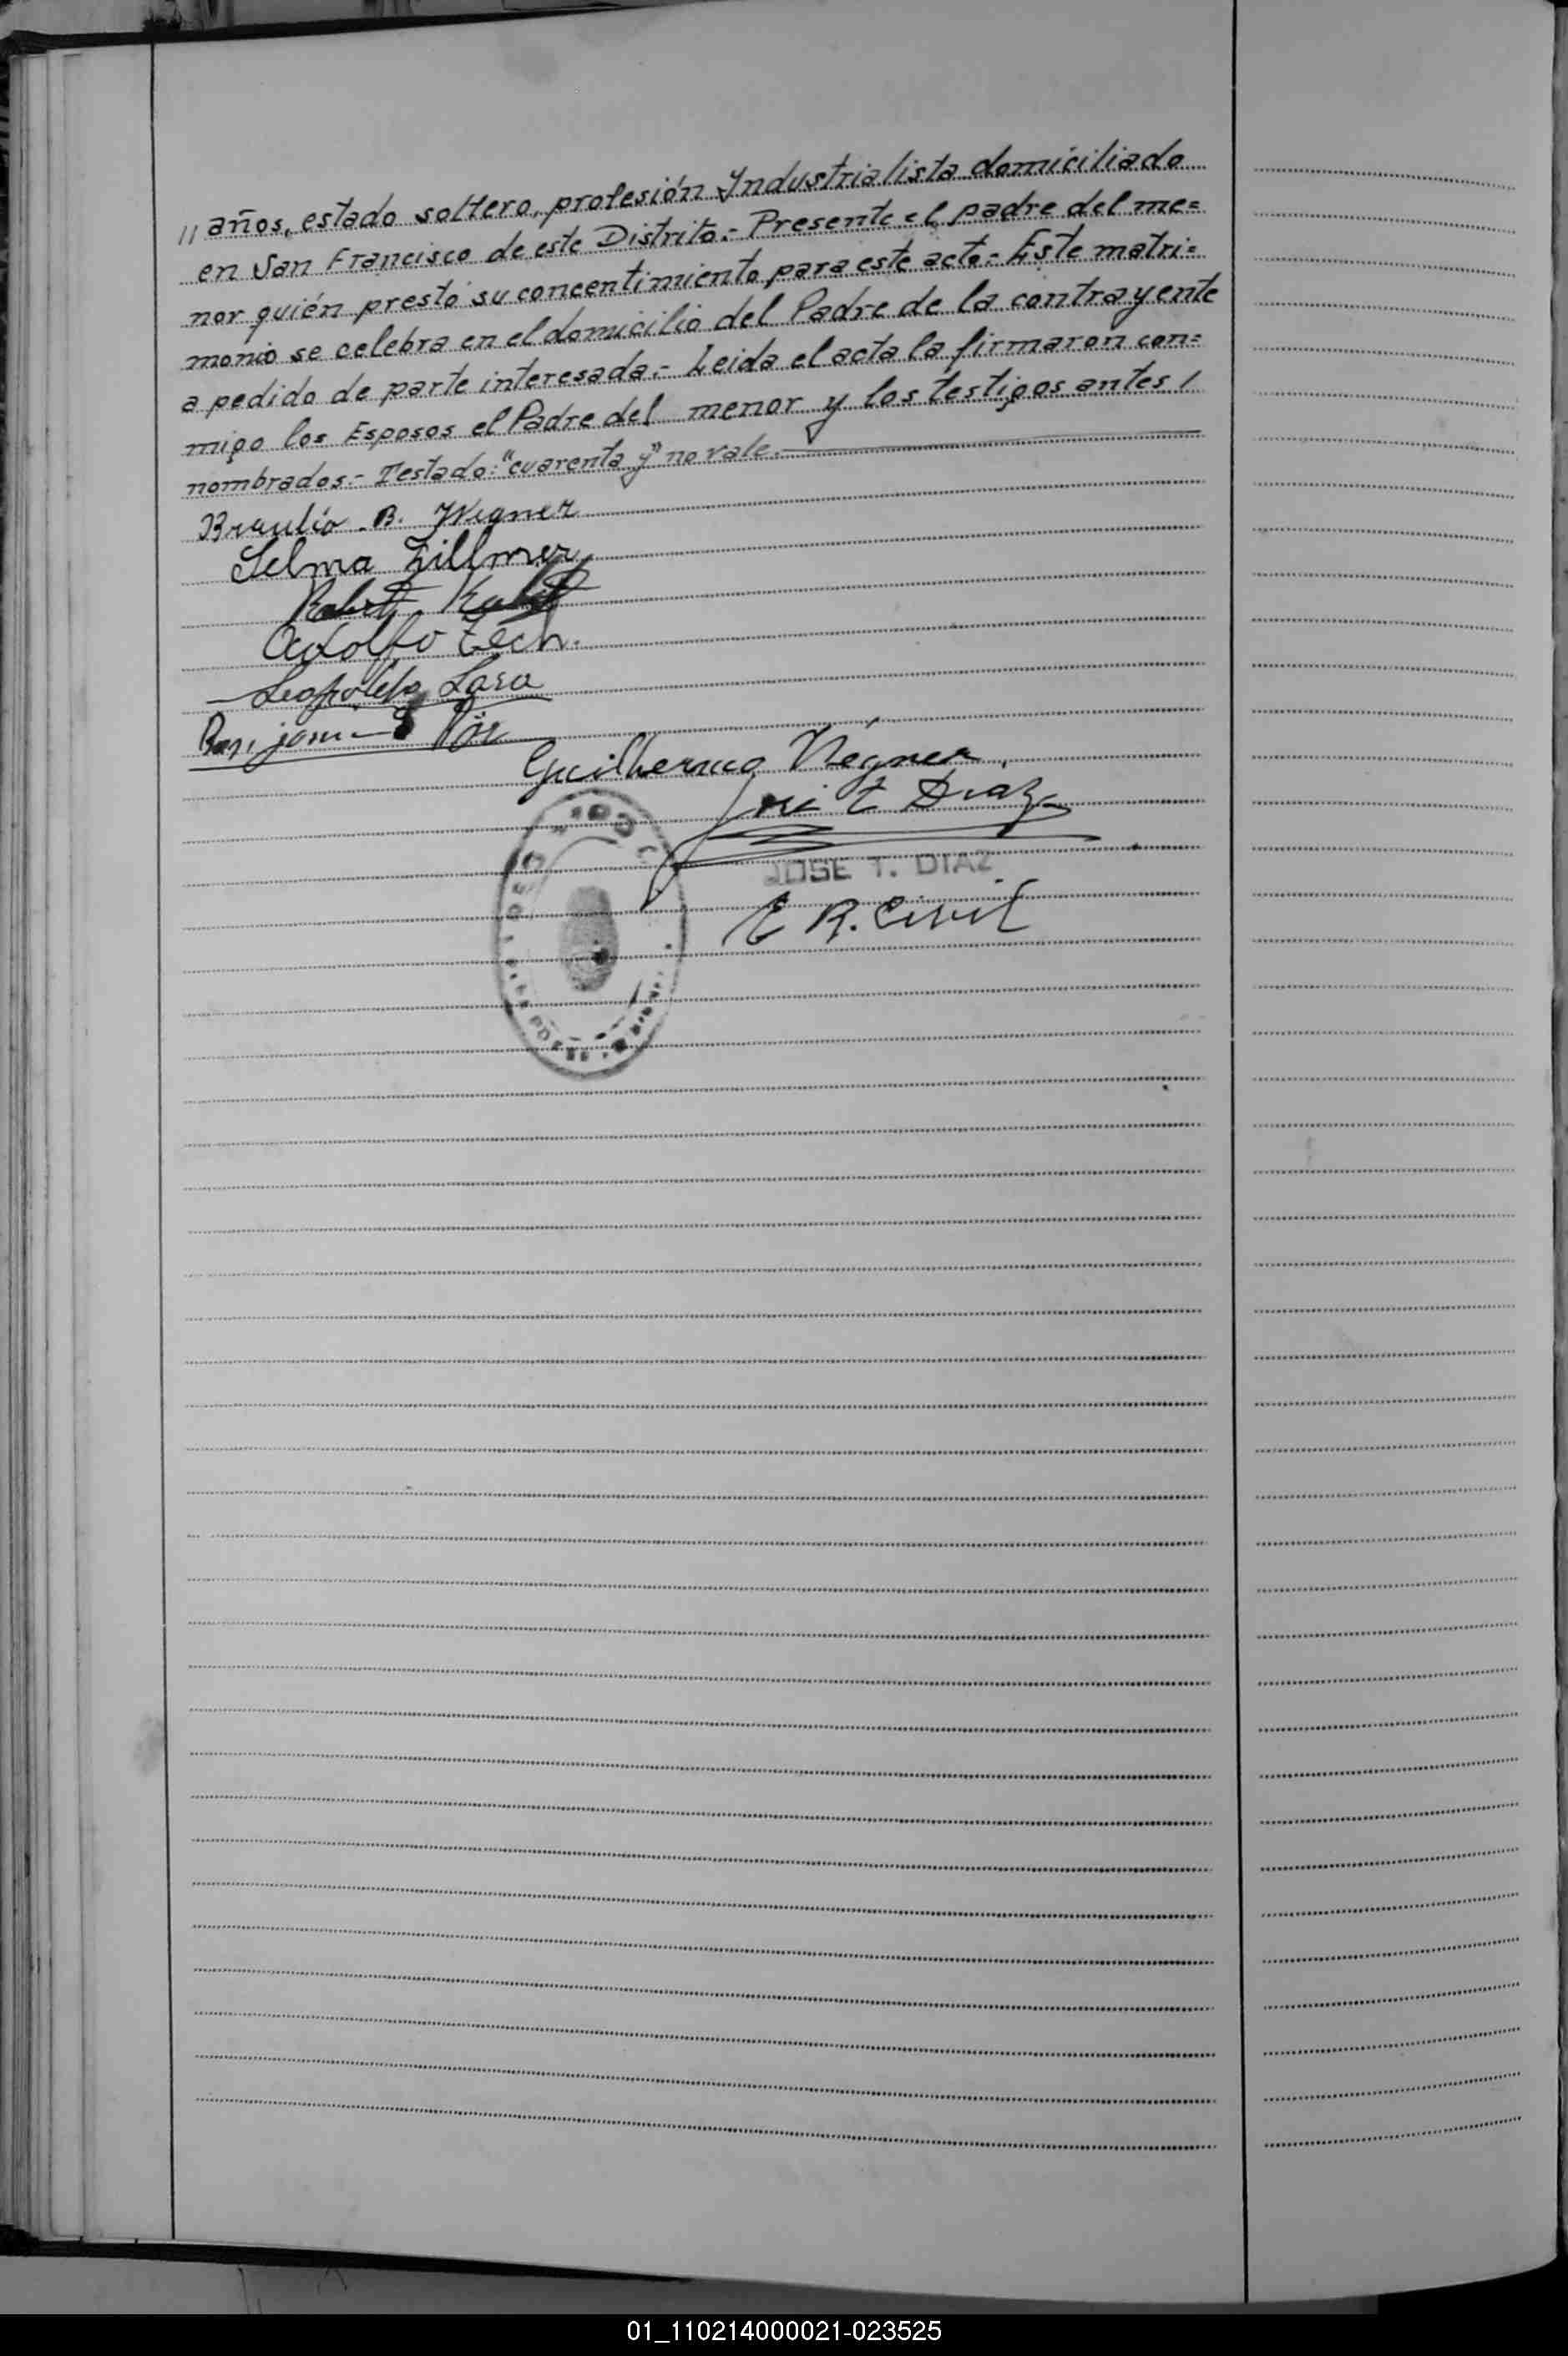 // años, estado soltero, profesión Industrialista domiciliado
en San Francisco de este Distrito.- Presente el padre del me=
nor quién prestó su concentimiento para este acto.- Este matri=
monio se celebra en el domicilio del Padre de la contrayente
a pedido de parte interesada.- Leida el acta la firmaron con=
migo los Esposos el Padre del menor y los testigos antes /
nombrados.- Testado: "cuarenta y" no vale.-
Braulio B. Wegner
Selma Zillmer
Adolfo Zech.
Leopoldo Lara
Guilhermo Wégner.
José T Diaz
JOSE T. DIAZ
E R. Civil
01_110214000021-023525